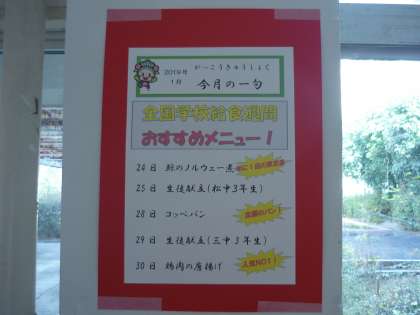 がっこうきゅうしょく
2019年
1月
今月の一句
全国学校給食週間
おすすめメニュー！
24日 鯨のノルウェー煮
25日 生徒献立(松中3年生)
28日 コッペパン
29日 生徒献立(三中3年生)
30日 鶏肉の唐揚げ 人気NO1！